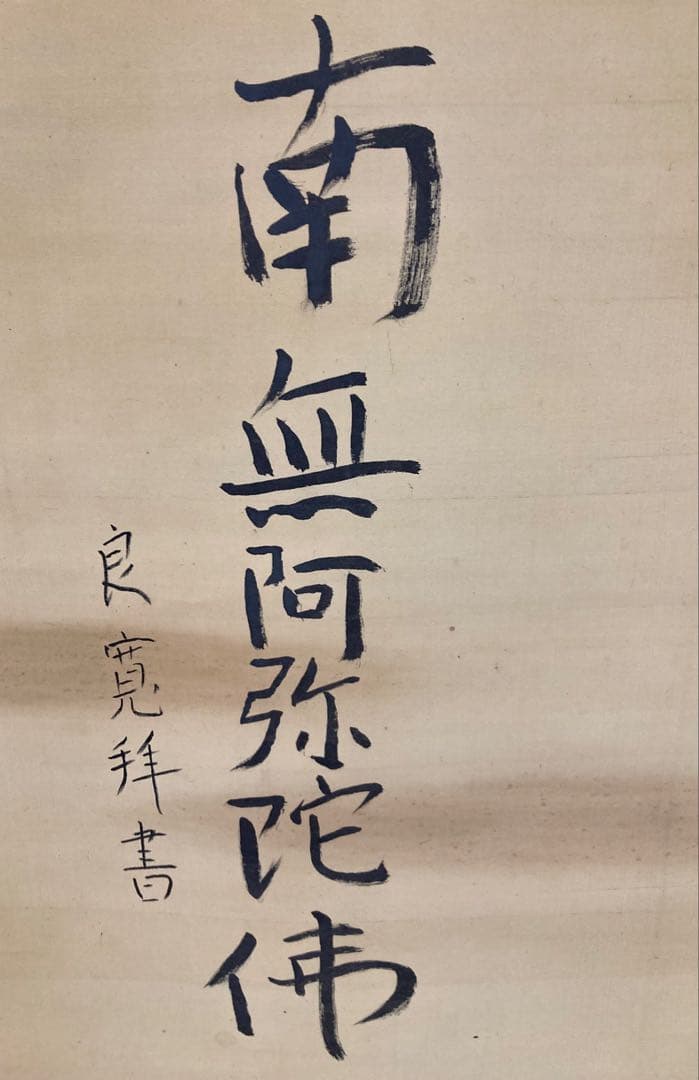 南無阿弥陀佛
良寛拜書